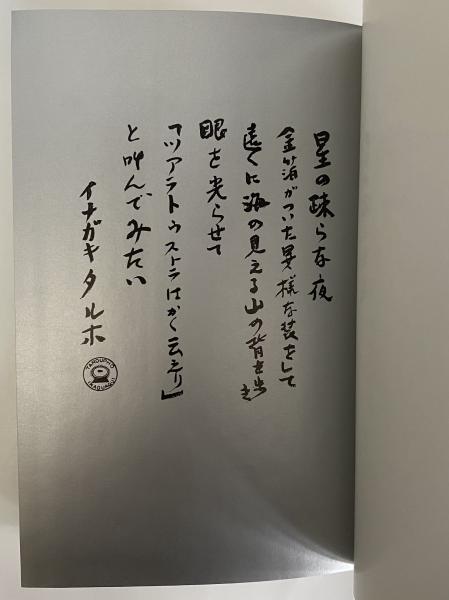 星の疎らな夜
金箔がついた異様な装をして
遠くに海の見える山の背を歩き
眼を光らせて
「ツアラトゥストラはかく云えり」
と叫んでみたい
イナガキタルホ
TAROUPHO
INAGUAQUI